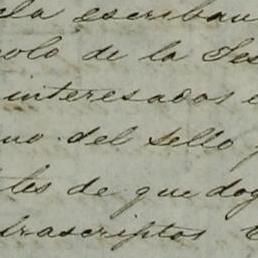 la escriban
colo de la Tes
interesados
no del sello
tes de que doy
trascriptos